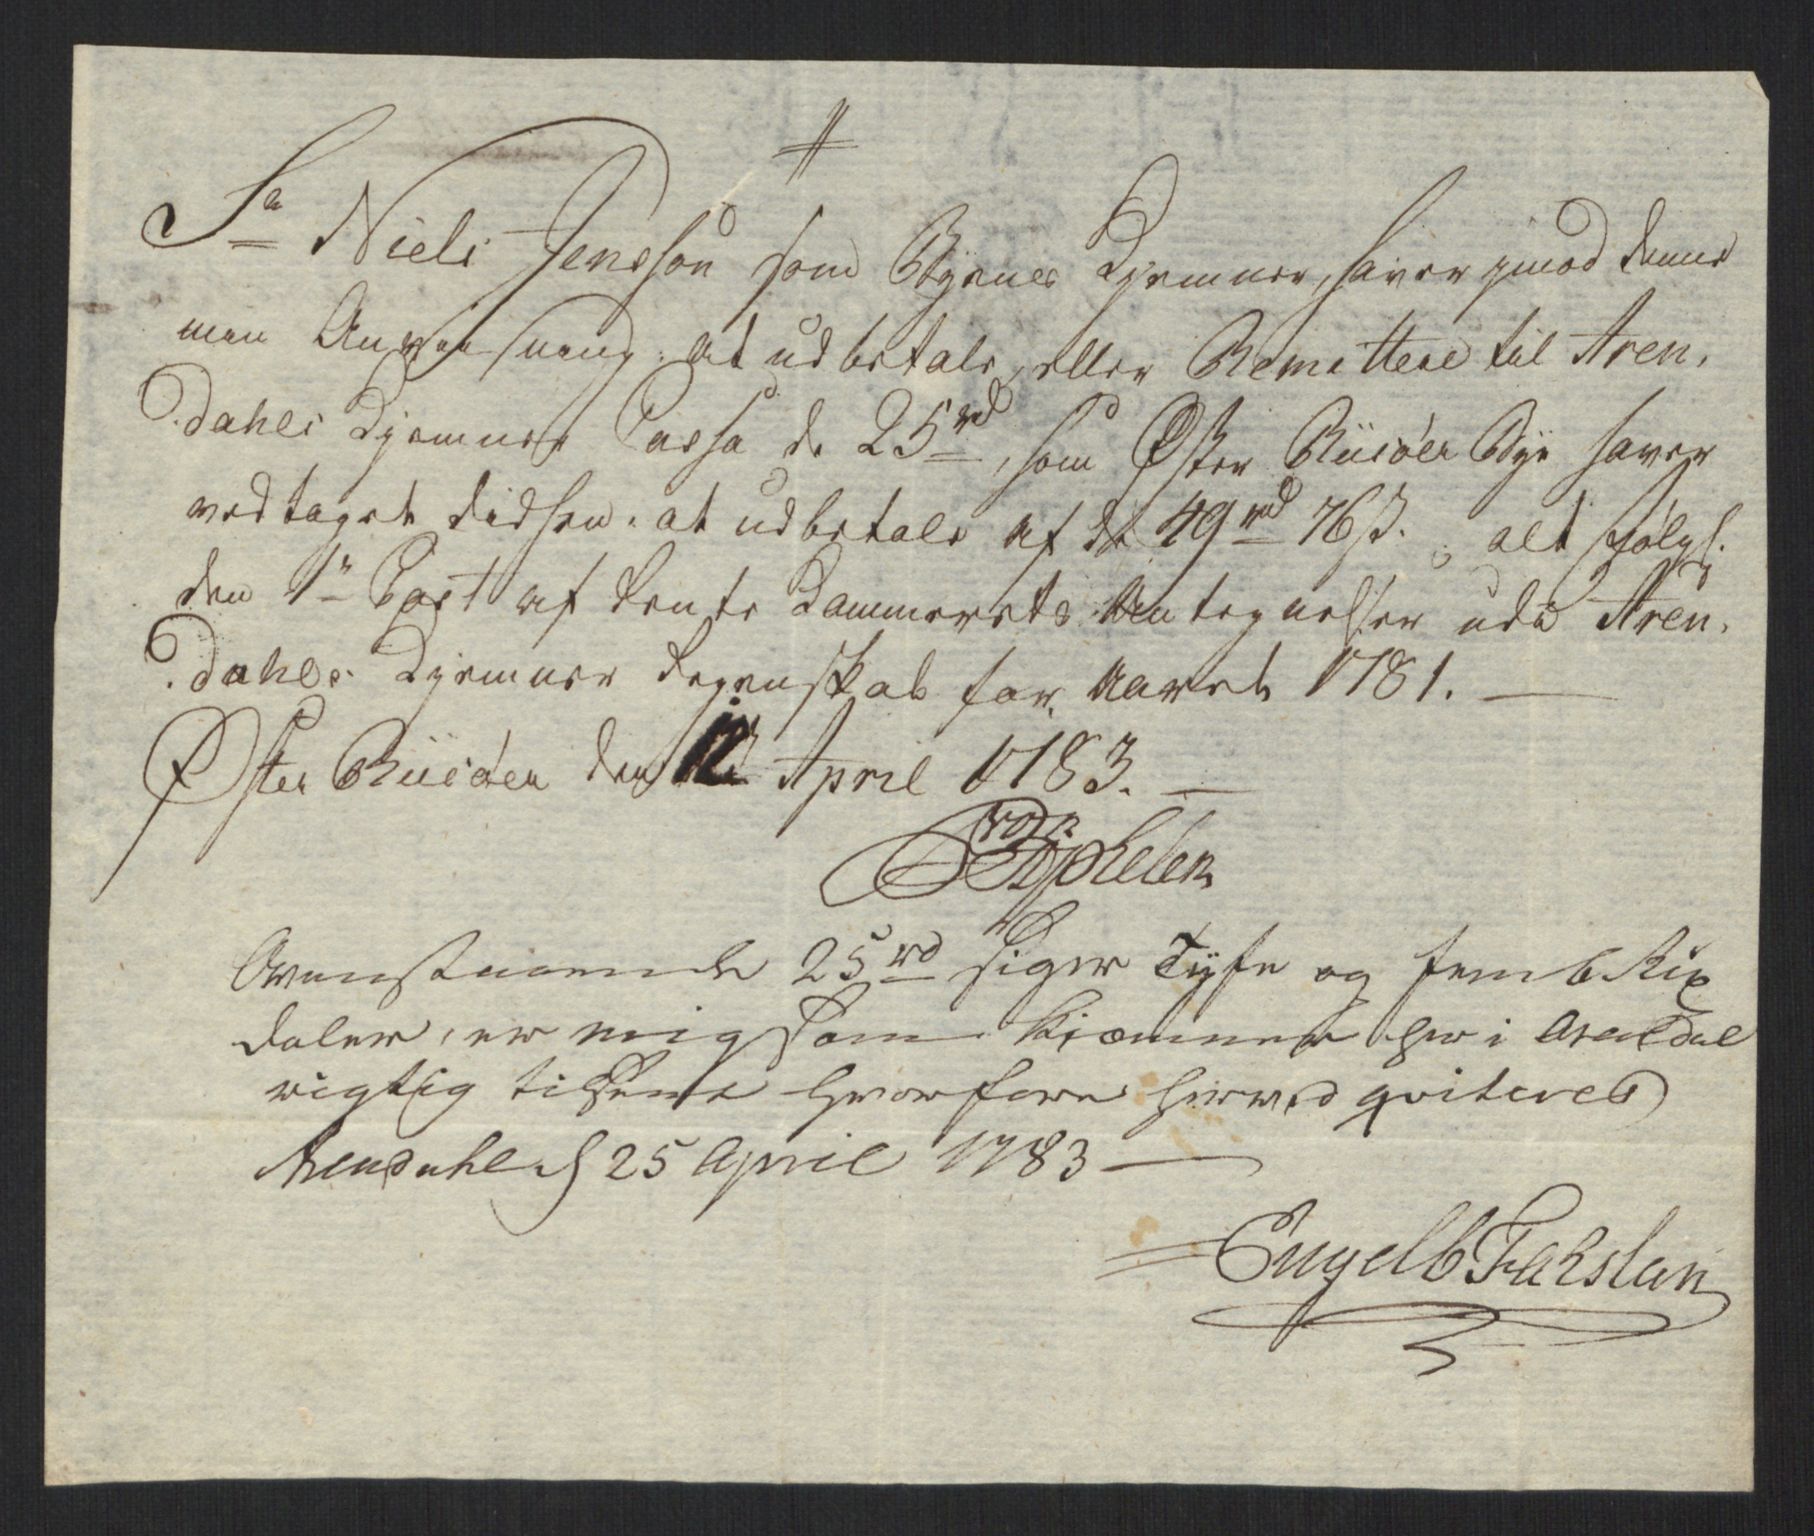 Sr Niels Jensson som Byenes Kjemner, haver imod denne
min Anviisning at udbetale, eller Remittere til Aren,
dahls Kjemner Cassa de 25rd, som Øster Riisöer Bye haver
vedtaget didhen at udbetale af de 49rd 76s. alt følgl.
den 1n Post af Rente Kammerets Antegnelser udi Aren,
dahls Kjemner Regenskab for Aaret 1781.
Øster Riisöer den April 1783.
Ovenstaaende 25rd siger Tyfe og femb Rix
daler, er mig som Kiæmner her i Arendal
rigtig tilsendt hvorfore herved qviteres
Arendahl d 25 April 1783
Engelb Falslan